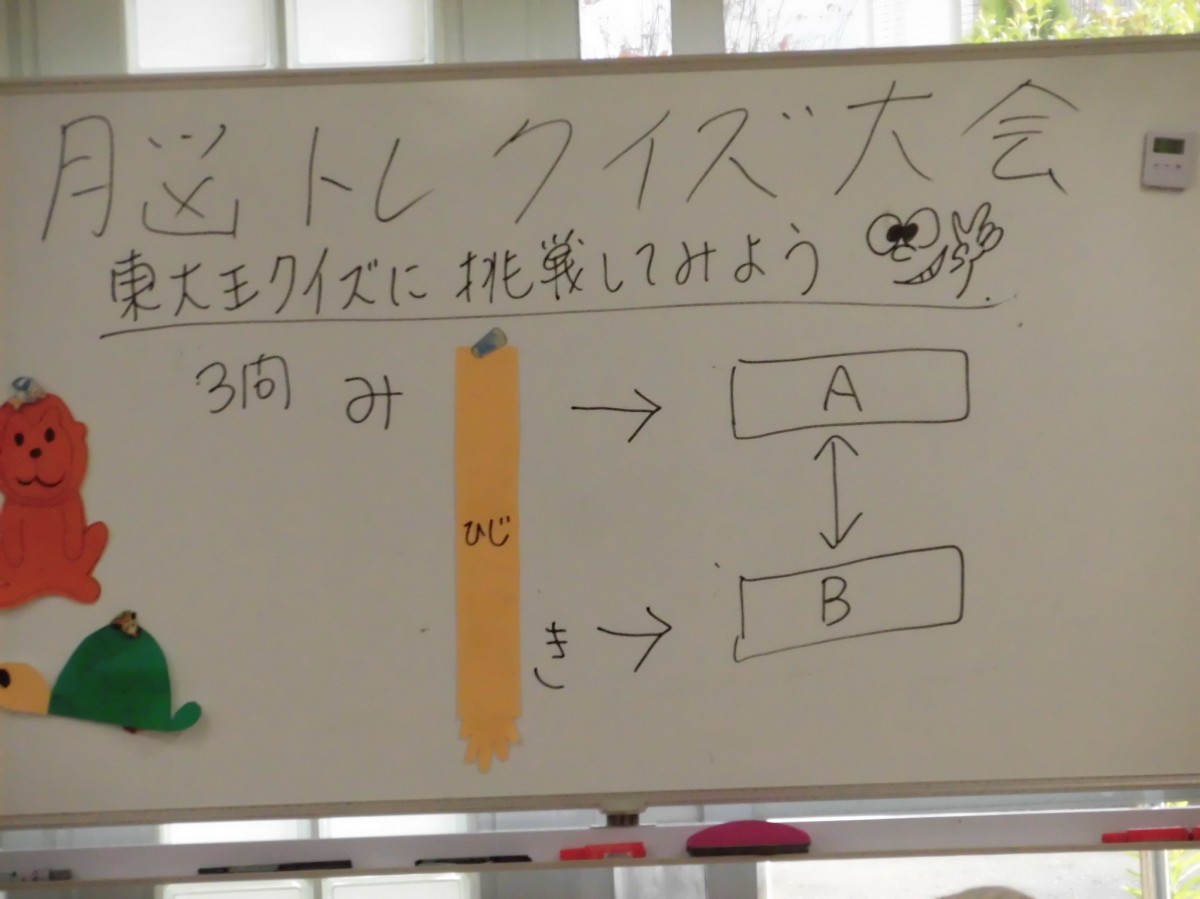 脳トレクイズ大会
東大王クイズに挑戦してみよう
3問 み → A
ひじ
き → B